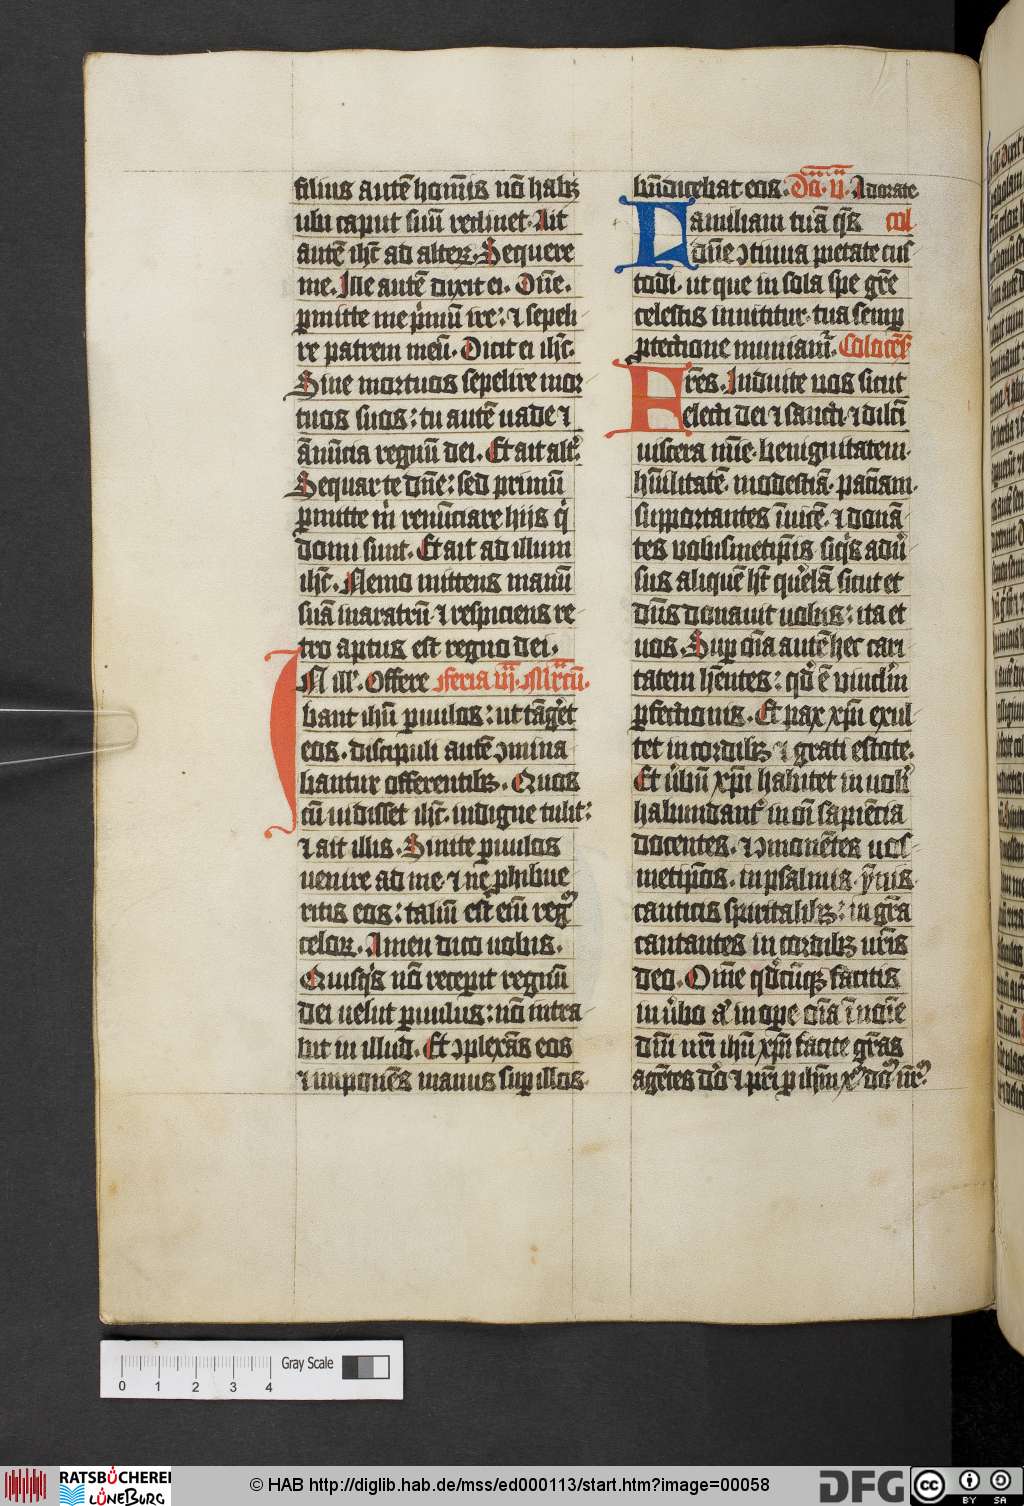 filius autē homīs nō habꝫ
ubi caput suū reclinet. Ait
autē ihc̄ ad alterꝝ. Sequere
me. Ille autē dixit ei. Dn̄e.
ꝑmitte me pͥmū ire: ⁊ sepeli
re patrem meū. Dicit ei ihc̄.
Sine mortuos sepelire mor
tuos suos: tu autē uade ⁊
ānūcia regnū dei. Et ait altͥ.
Sequar te dn̄e: sed primū
ꝑmitte m̄ renūciare hijs qͥ
domi sunt. Et ait ad illum
ihc̄. Nemo mittens manū
suā in aratrū. ⁊ respiciens re
tro aptus est regno dei.
IN ill'. Offere Feria iiii. Mrcū.
bant ihū ꝑuulos: ut tāg͛et
eos. discipuli autē ↄmina
bantur offerentibꝫ. Quos
cū uidisset ihc̄. indigne tulit:
⁊ ait illis. Sinite ꝑuulos
uenire ad me. ⁊ ne ꝓhibue
ritis eos: taliū est eni regᷓ
celoꝝ. Amen dico uobis.
Quisqͥs nō recepit regnū
dei uelut ꝑuulus: nō intra
bit in illud. Et ↄplexās eos
⁊ imponēs manus suꝑ illos.
bn̄dicebat eos. Dn̄ca. v. Adorate
Familiam tuā qs̄ col
dn̄e ↄtinua pietate cus
todi. ut que in sola spe gr̄e
celestis innititur. tua semꝑ
ꝓtectione muniat͛. Coloceñ.
Fr̄es. Induite uos sicut
electi dei ⁊ sancti ⁊ dilc̄i
uiscera mīe. benignitatem.
hūilitatē. modestiā. paciam.
supportantes inuicē. ⁊ donā
tes vobismetipīs siqͥs adū͛
sus aliquē hꝫ qu͛elā sicut et
dn̄s donauit uobis: ita et
uos. Suꝑ oīa autē hec cari
tatem hn̄tes: qd̄ ē vincl'm
ꝑfectionis. Et pax xp̄i exul
tet in cordibꝫ. ⁊ grati estote.
Et u͛bū xp̄i habitet in uob͛
habundant͛ in oī sapīecia
docentes. ⁊ ↄmonētes uos
metip̄os. in psalmis. ymis.
canticis spiritalibꝫ: in gr̄a
cantantes in cordibꝫ ur̄is
deo. Omē qdcūqꝫ facitis
in u͛bo aͭ in ope oīa ī noīe
dn̄i nr̄i ihū xp̄i facite gr̄as
agētes dō ⁊ pr̄i ꝑ ihm̄ xᵐ dn̄ᵐ nr̄ᵐ.
0 1 2 3 4
Gray Scale
RATSBÜCHEREI
LÜNEBURG
© HAB http://diglib.hab.de/mss/ed000113/start.htm?image=00058
DFG
cc BY SA